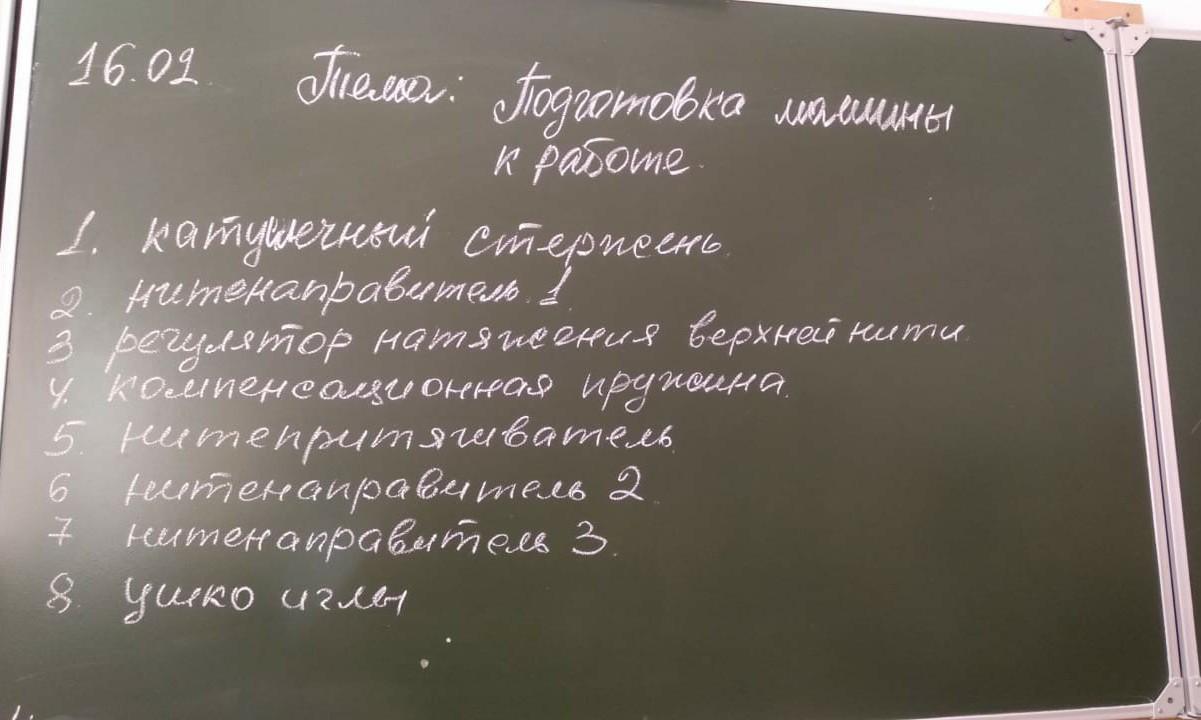 16.02. Тема: Подготовка машины
к работе.
1. катушечный стержень.
2. нитенаправитель 1
3 регулятор натяжения верхней нити.
4. компенсационная пружина.
5. нитепритягиватель.
6 нитенаправитель 2
7 нитенаправитель 3.
8. ушко иглы